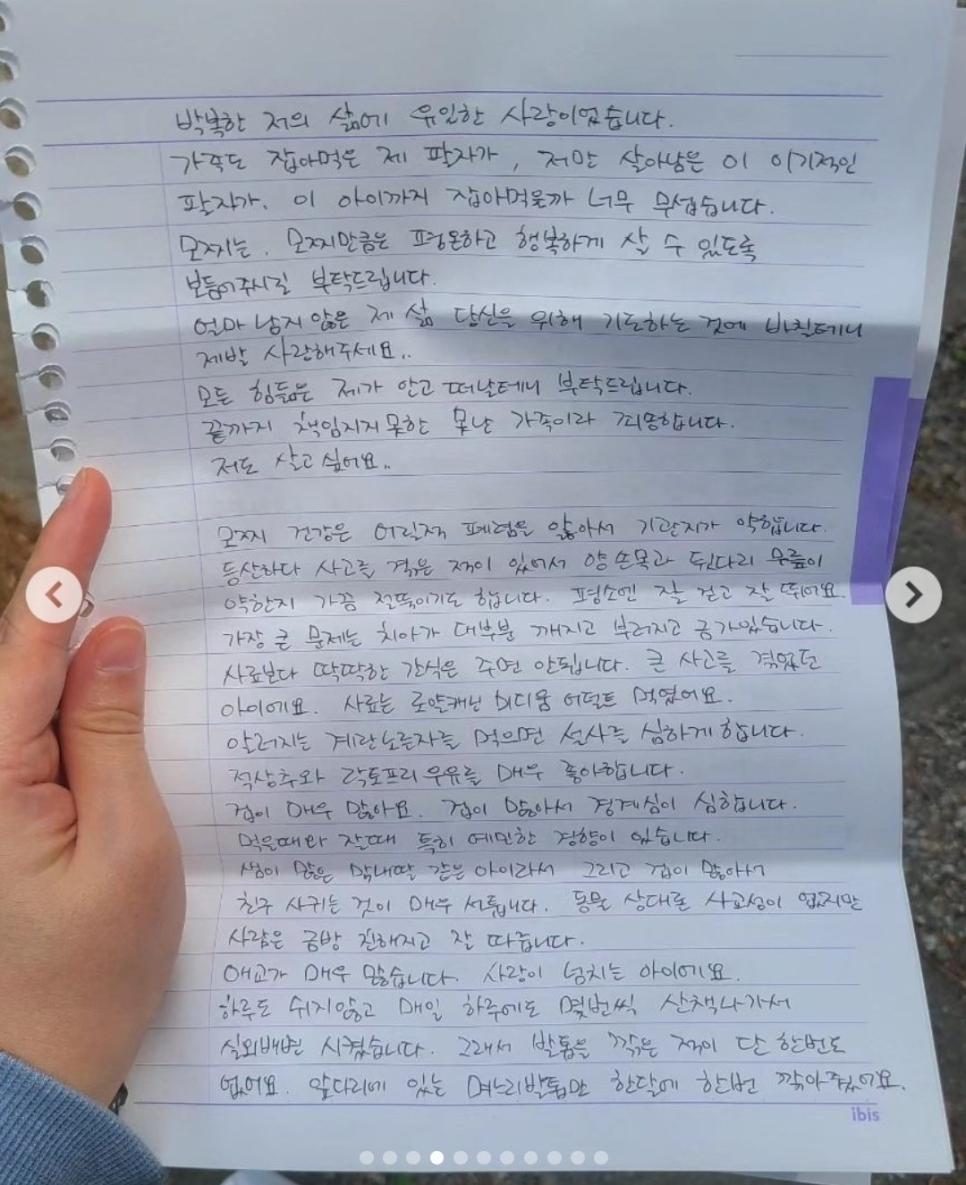 박복한 저의 삶에 유일한 사랑이었습니다.
가족도 잡아먹은 제 팔자가, 저만 살아남은 이 이기적인
팔자가. 이 아이까지 잡아먹을까 너무 무섭습니다.
모찌는. 모찌만큼은 평온하고 행복하게 살 수 있도록
보듬어주시길 부탁드립니다.
얼마 남지 않은 제 삶 당신을 위해 기도하는 것에 바칠테니
제발 사랑해주세요..
모든 힘듦은 제가 안고 떠날테니 부탁드립니다.
끝까지 책임지지 못한 못난 가족이라 죄송합니다.
저도 살고 싶어요..
모찌 건강은 어릴적 폐렴을 앓아서 기관지가 약합니다.
등산하다 사고를 겪은 적이 있어서 양 손목과 뒷다리 무릎이
약한지 가끔 절뚝이기도 합니다. 평소엔 잘 걷고 잘 뛰어요.
가장 큰 문제는 치아가 대부분 깨지고 부러지고 금가있습니다.
사료보다 딱딱한 간식은 주면 안됩니다. 큰 사고를 겪었던
아이에요. 사료는 로얄캐닌 미디움 어덜트 먹였어요.
알러지는 계란노른자를 먹으면 설사를 심하게 합니다.
적상추와 락토프리 우유를 매우 좋아합니다.
겁이 매우 많아요. 겁이 많아서 경계심이 심합니다.
먹을때와 잘때 특히 예민한 경향이 있습니다.
샘이 많은 막내딸 같은 아이라서 그리고 겁이 많아서
친구 사귀는 것이 매우 서툽니다. 동물 상대론 사교성이 없지만
사람은 금방 친해지고 잘 따릅니다.
애교가 매우 많습니다. 사랑이 넘치는 아이에요.
하루도 쉬지않고 매일 하루에도 몇번씩 산책나가서
실외배변 시켰습니다. 그래서 발톱은 깎은 적이 단 한번도
없어요. 앞다리에 있는 며느리발톱만 한달에 한번 깎아주었어요.
ibis